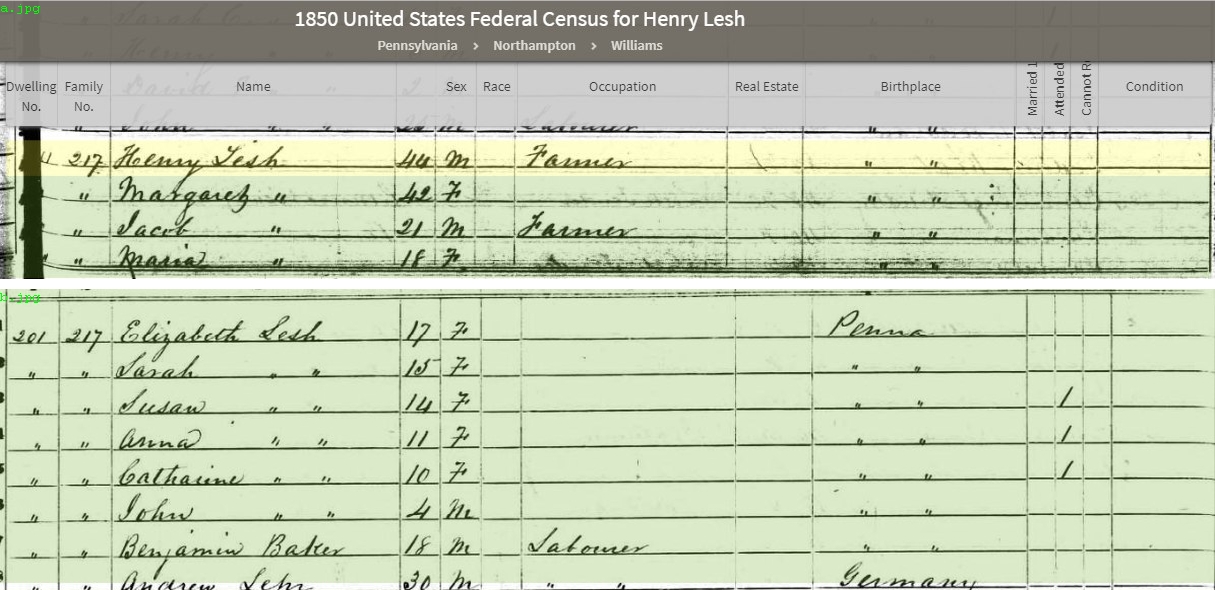 a.jpg
1850 United States Federal Census for Henry Lesh
Pennsylvania > Northampton > Williams
Dwelling No. Family No. Name Sex Race Occupation Real Estate Birthplace Married 1 Attended Cannot R Condition
John " " 25 M Labourer " "
" 217 Henry Lesh 44 M Farmer " "
" Margaret " 42 F " "
" Jacob " 21 M Farmer " "
" Maria " 18 F " "
b.jpg
201 217 Elizabeth Lesh 17 F Penna
" " Sarah " " 15 F " "
" " Susan " " 14 F " " 1
" " Anna " " 11 F " " 1
" " Catharine " " 10 F " " 1
" " John " " 4 M " "
" " Benjamin Baker 18 M Labourer " "
" " Andrew Lehr 30 M " " Germany